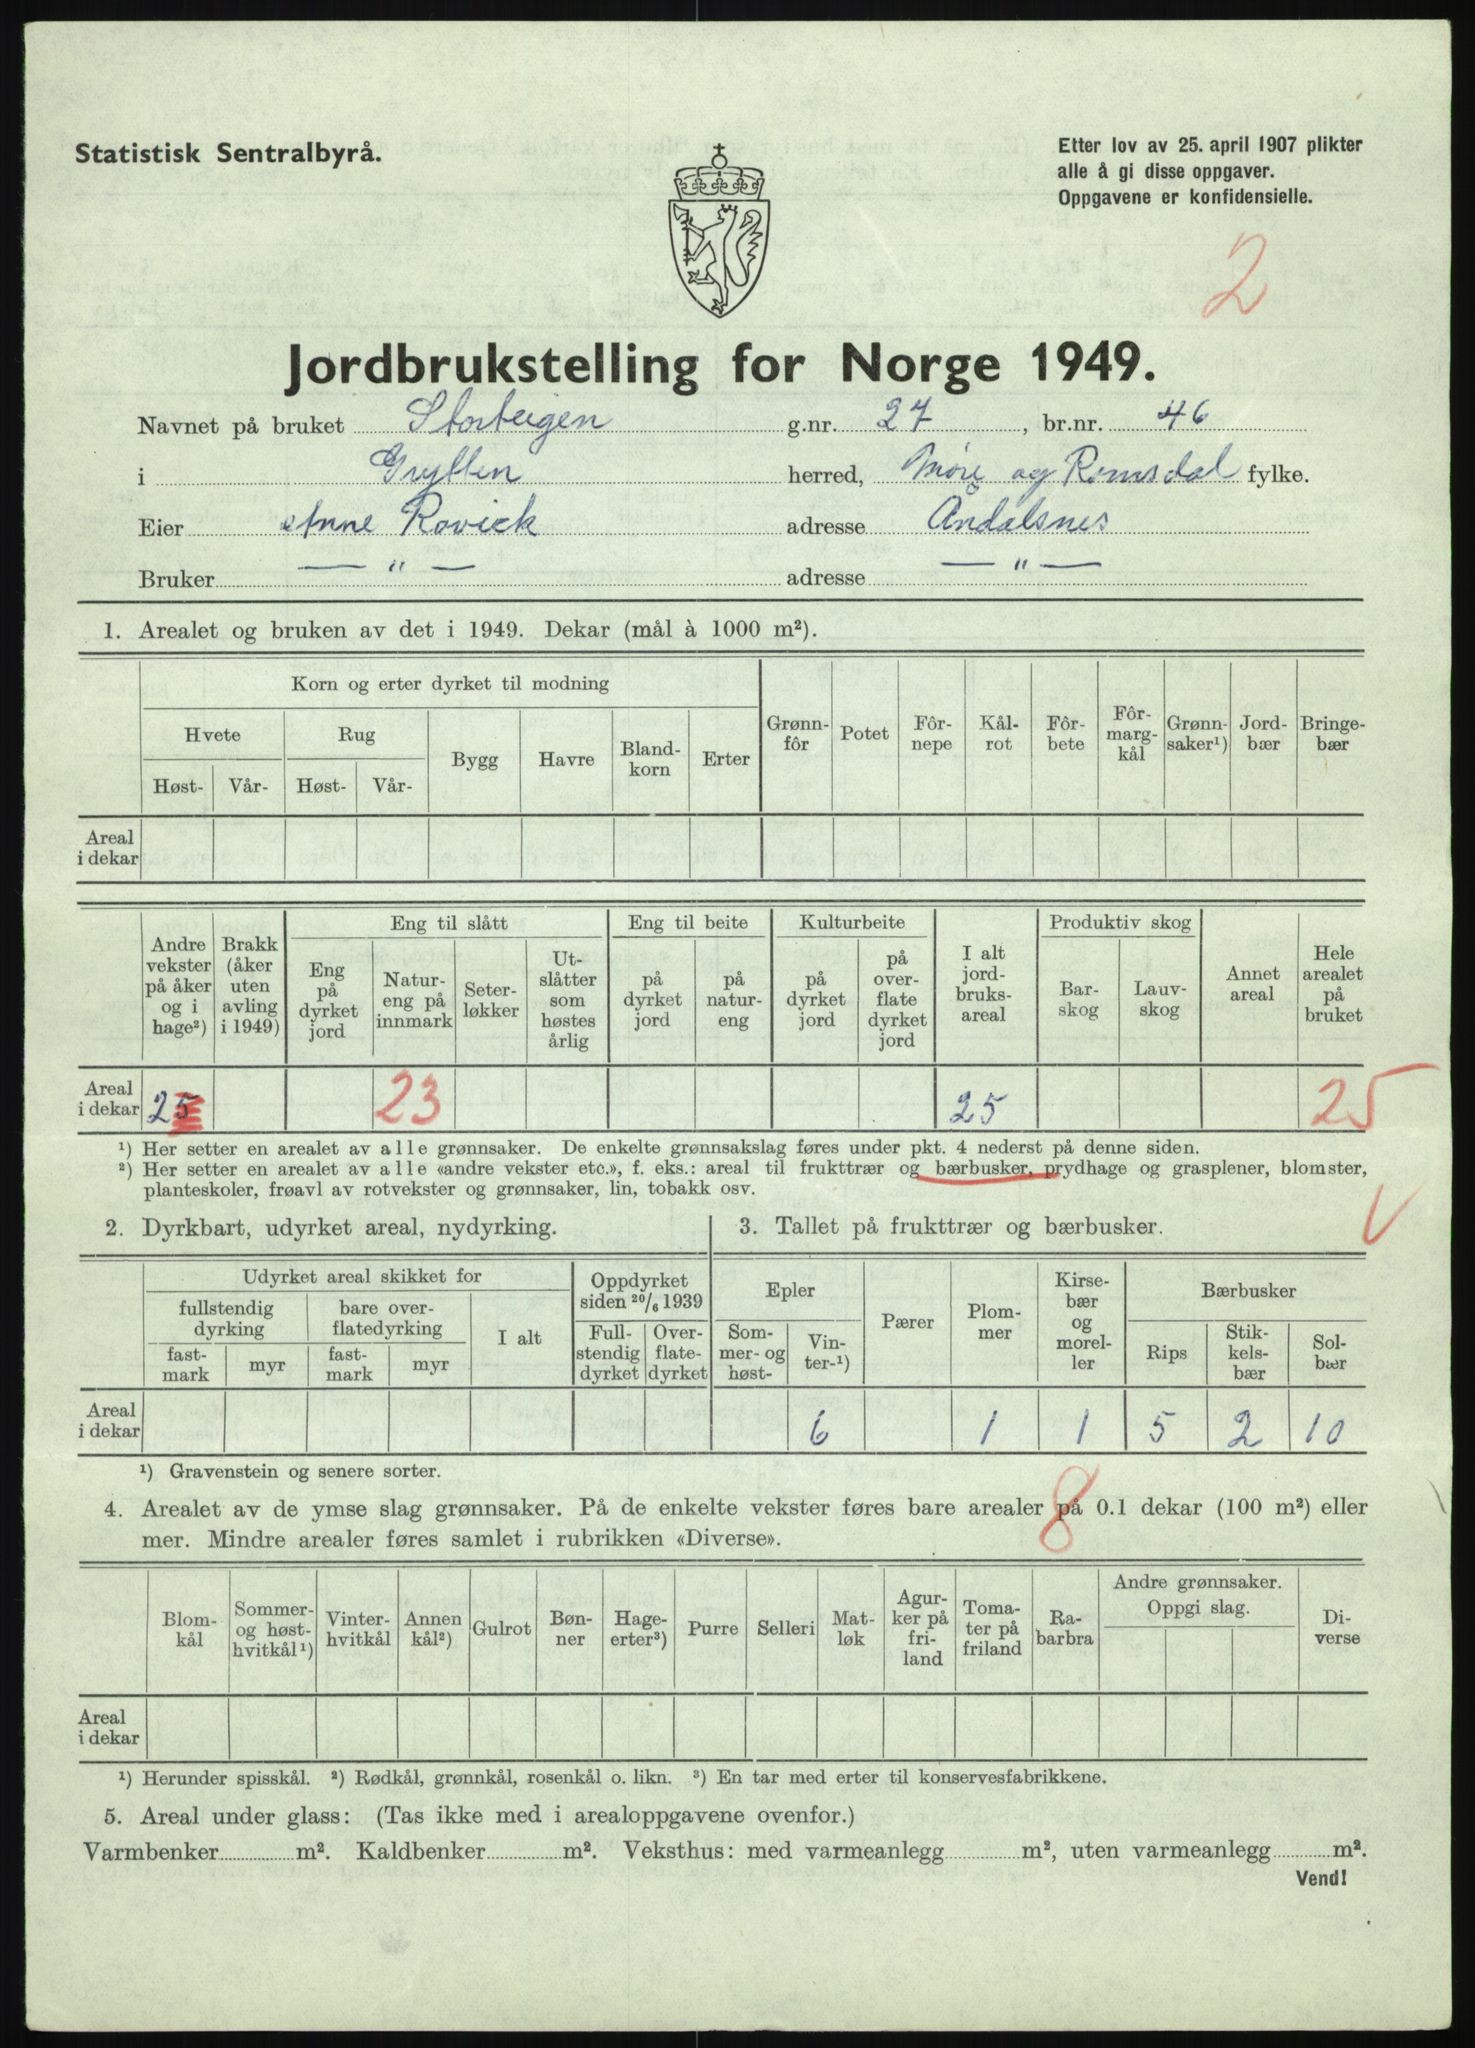 Statistisk Sentralbyrå.
Etter lov av 25. april 1907 plikter
alle å gi disse oppgaver.
Oppgavene er konfidensielle.
2
Jordbrukstelling for Norge 1949.
Navnet på bruket Storteigen g.nr. 27, br.nr. 46
i Grytten herred, Møre og Romsdal fylke.
Eier Anne Rovick adresse Åndalsnes
Bruker — " — adresse — " —
1. Arealet og bruken av det i 1949. Dekar (mål à 1000 m²).
Korn og erter dyrket til modning
Hvete Rug
Høst- Vår- Høst- Vår- Bygg Havre Bland-korn Erter Grønn-fôr Potet Fôr-nepe Kål-rot Fôr-bete Fôr-marg-kål Grønn-saker¹) Jord-bær Bringe-bær
Areal
i dekar
Eng til slått Eng til beite Kulturbeite Produktiv skog
Andre vekster på åker og i hage²) Brakk (åker uten avling i 1949) Eng på dyrket jord Natur-eng på innmark Seter-løkker Ut-slåtter som høstes årlig på dyrket jord på natur-eng på dyrket jord på over-flate dyrket jord I alt jord-bruks-areal Bar-skog Lauv-skog Annet areal Hele arealet på bruket
Areal
i dekar 25 23 25 25
¹) Her setter en arealet av alle grønnsaker. De enkelte grønnsakslag føres under pkt. 4 nederst på denne siden.
²) Her setter en arealet av alle «andre vekster etc.», f. eks.: areal til frukttrær og bærbusker, prydhage og grasplener, blomster,
planteskoler, frøavl av rotvekster og grønnsaker, lin, tobakk osv.
2. Dyrkbart, udyrket areal, nydyrking.
3. Tallet på frukttrær og bærbusker.
Udyrket areal skikket for Oppdyrket siden 20/6 1939
fullstendig dyrking bare over-flatedyrking I alt
fast-mark myr fast-mark myr Full-stendig dyrket Over-flate-dyrket
Epler Pærer Plom-mer Kirse-bær og morel-ler Bærbusker
Som-mer- og høst- Vin-ter-¹) Rips Stik-kels-bær Sol-bær
Areal
i dekar 6 1 1 5 2 10
¹) Gravenstein og senere sorter.
8
4. Arealet av de ymse slag grønnsaker. På de enkelte vekster føres bare arealer på 0.1 dekar (100 m²) eller
mer. Mindre arealer føres samlet i rubrikken «Diverse».
Blom-kål Sommer- og høst-hvitkål¹) Vinter-hvitkål Annen kål²) Gulrot Bøn-ner Hage-erter³) Purre Selleri Mat-løk Agur-ker på fri-land Toma-ter på friland Ra-barbra Andre grønnsaker. Oppgi slag. Di-verse
Areal
i dekar
¹) Herunder spisskål. ²) Rødkål, grønnkål, rosenkål o. likn. ³) En tar med erter til konservesfabrikkene.
5. Areal under glass: (Tas ikke med i arealoppgavene ovenfor.)
Varmbenker m². Kaldbenker m². Veksthus: med varmeanlegg m², uten varmeanlegg m².
Vend!